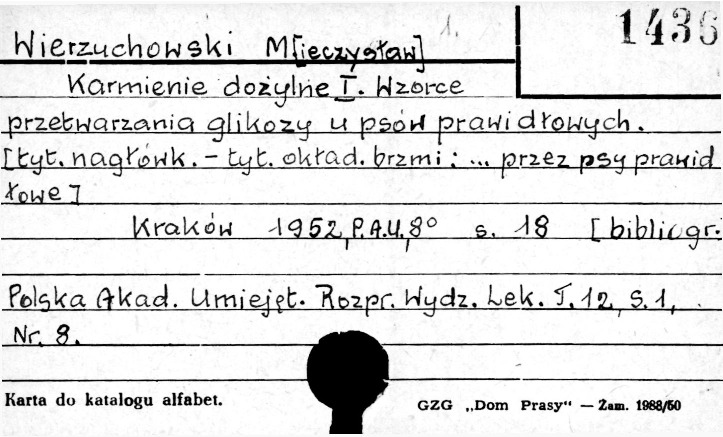 1436
1.
Wierzuchowski M[ieczysław]
Karmienie dożylne I. Wzorce
przetwarzania glikozy u psów prawidłowych.
[tyt. nagłówk. – tyt. okład. brzmi: ... przez psy prawid
łowe]
Kraków 1952, P.A.U, 8° s. 18 [bibliogr.
Polska Akad. Umiejęt. Rozpr. Wydz. Lek. T. 12, S. 1,
Nr. 8.
Karta do katalogu alfabet.
GZG „Dom Prasy“ — Zam. 1988/50